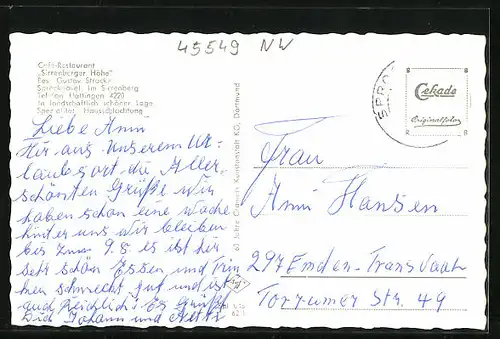 45549 NW
Café-Restaurant
"Sirrenberger Höhe"
Bes. Gustav Stracke
Sprockhövel, Im Sirrenberg
Telefon Hattingen 4220
In landschaftlich schöner Lage
Spezialität: Hausschlachtung
Liebe Anni
Hir aus unserem Ur-
laubsort die Aller
schönsten Grüße wir
haben schon eine Woche
hinter uns wir bleiben
bis zum 9.8 es ist hir
sehr schön Essen und Trin
ken schmeckt gut und ist
auch Reichlich Es Grüßt
Dich Johann und
Cramers Kunstanstalt KG, Dortmund
SPRO
Cekade
Originalfoto
Frau
Anni Hansen
297 Emden-Transvaal
Torrumer Str. 49